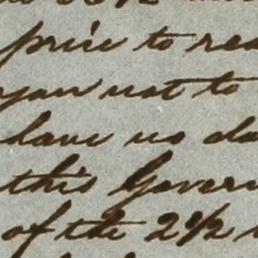 price to rea
you not to
have us do
this Govern
of the 2½